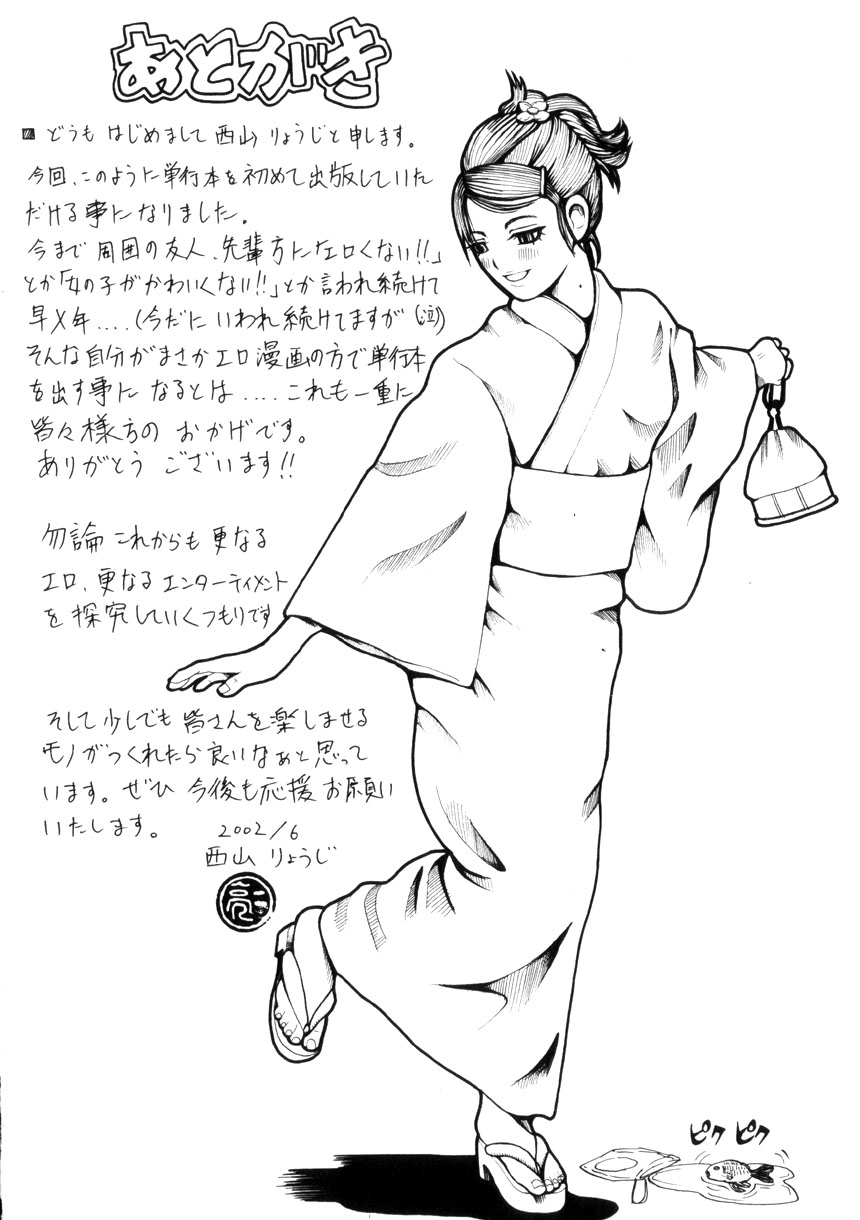 あとがき
どうも はじめまして 西山 りょうじと申します。
今回、このように単行本を初めて出版していた
だける事になりました。
今まで 周囲の友人、先輩方に「エロくない!!」
とか「女の子がかわいくない!!」とか言われ続けて
早X年....(今だに いわれ続けてますが(泣))
そんな自分がまさか エロ漫画の方で単行本
を出す事に なるとは .... これも一重に
皆々様方の おかげです。
ありがとう ございます!!
勿論 これからも 更なる
エロ、更なる エンターティメント
を 探究していくつもりです
そして 少しでも 皆さんを楽しませる
モノがつくれたら良いなぁと思って
います。ぜひ 今後も応援お願い
いたします。 2002/6
西山 りょうじ
ピク ピク